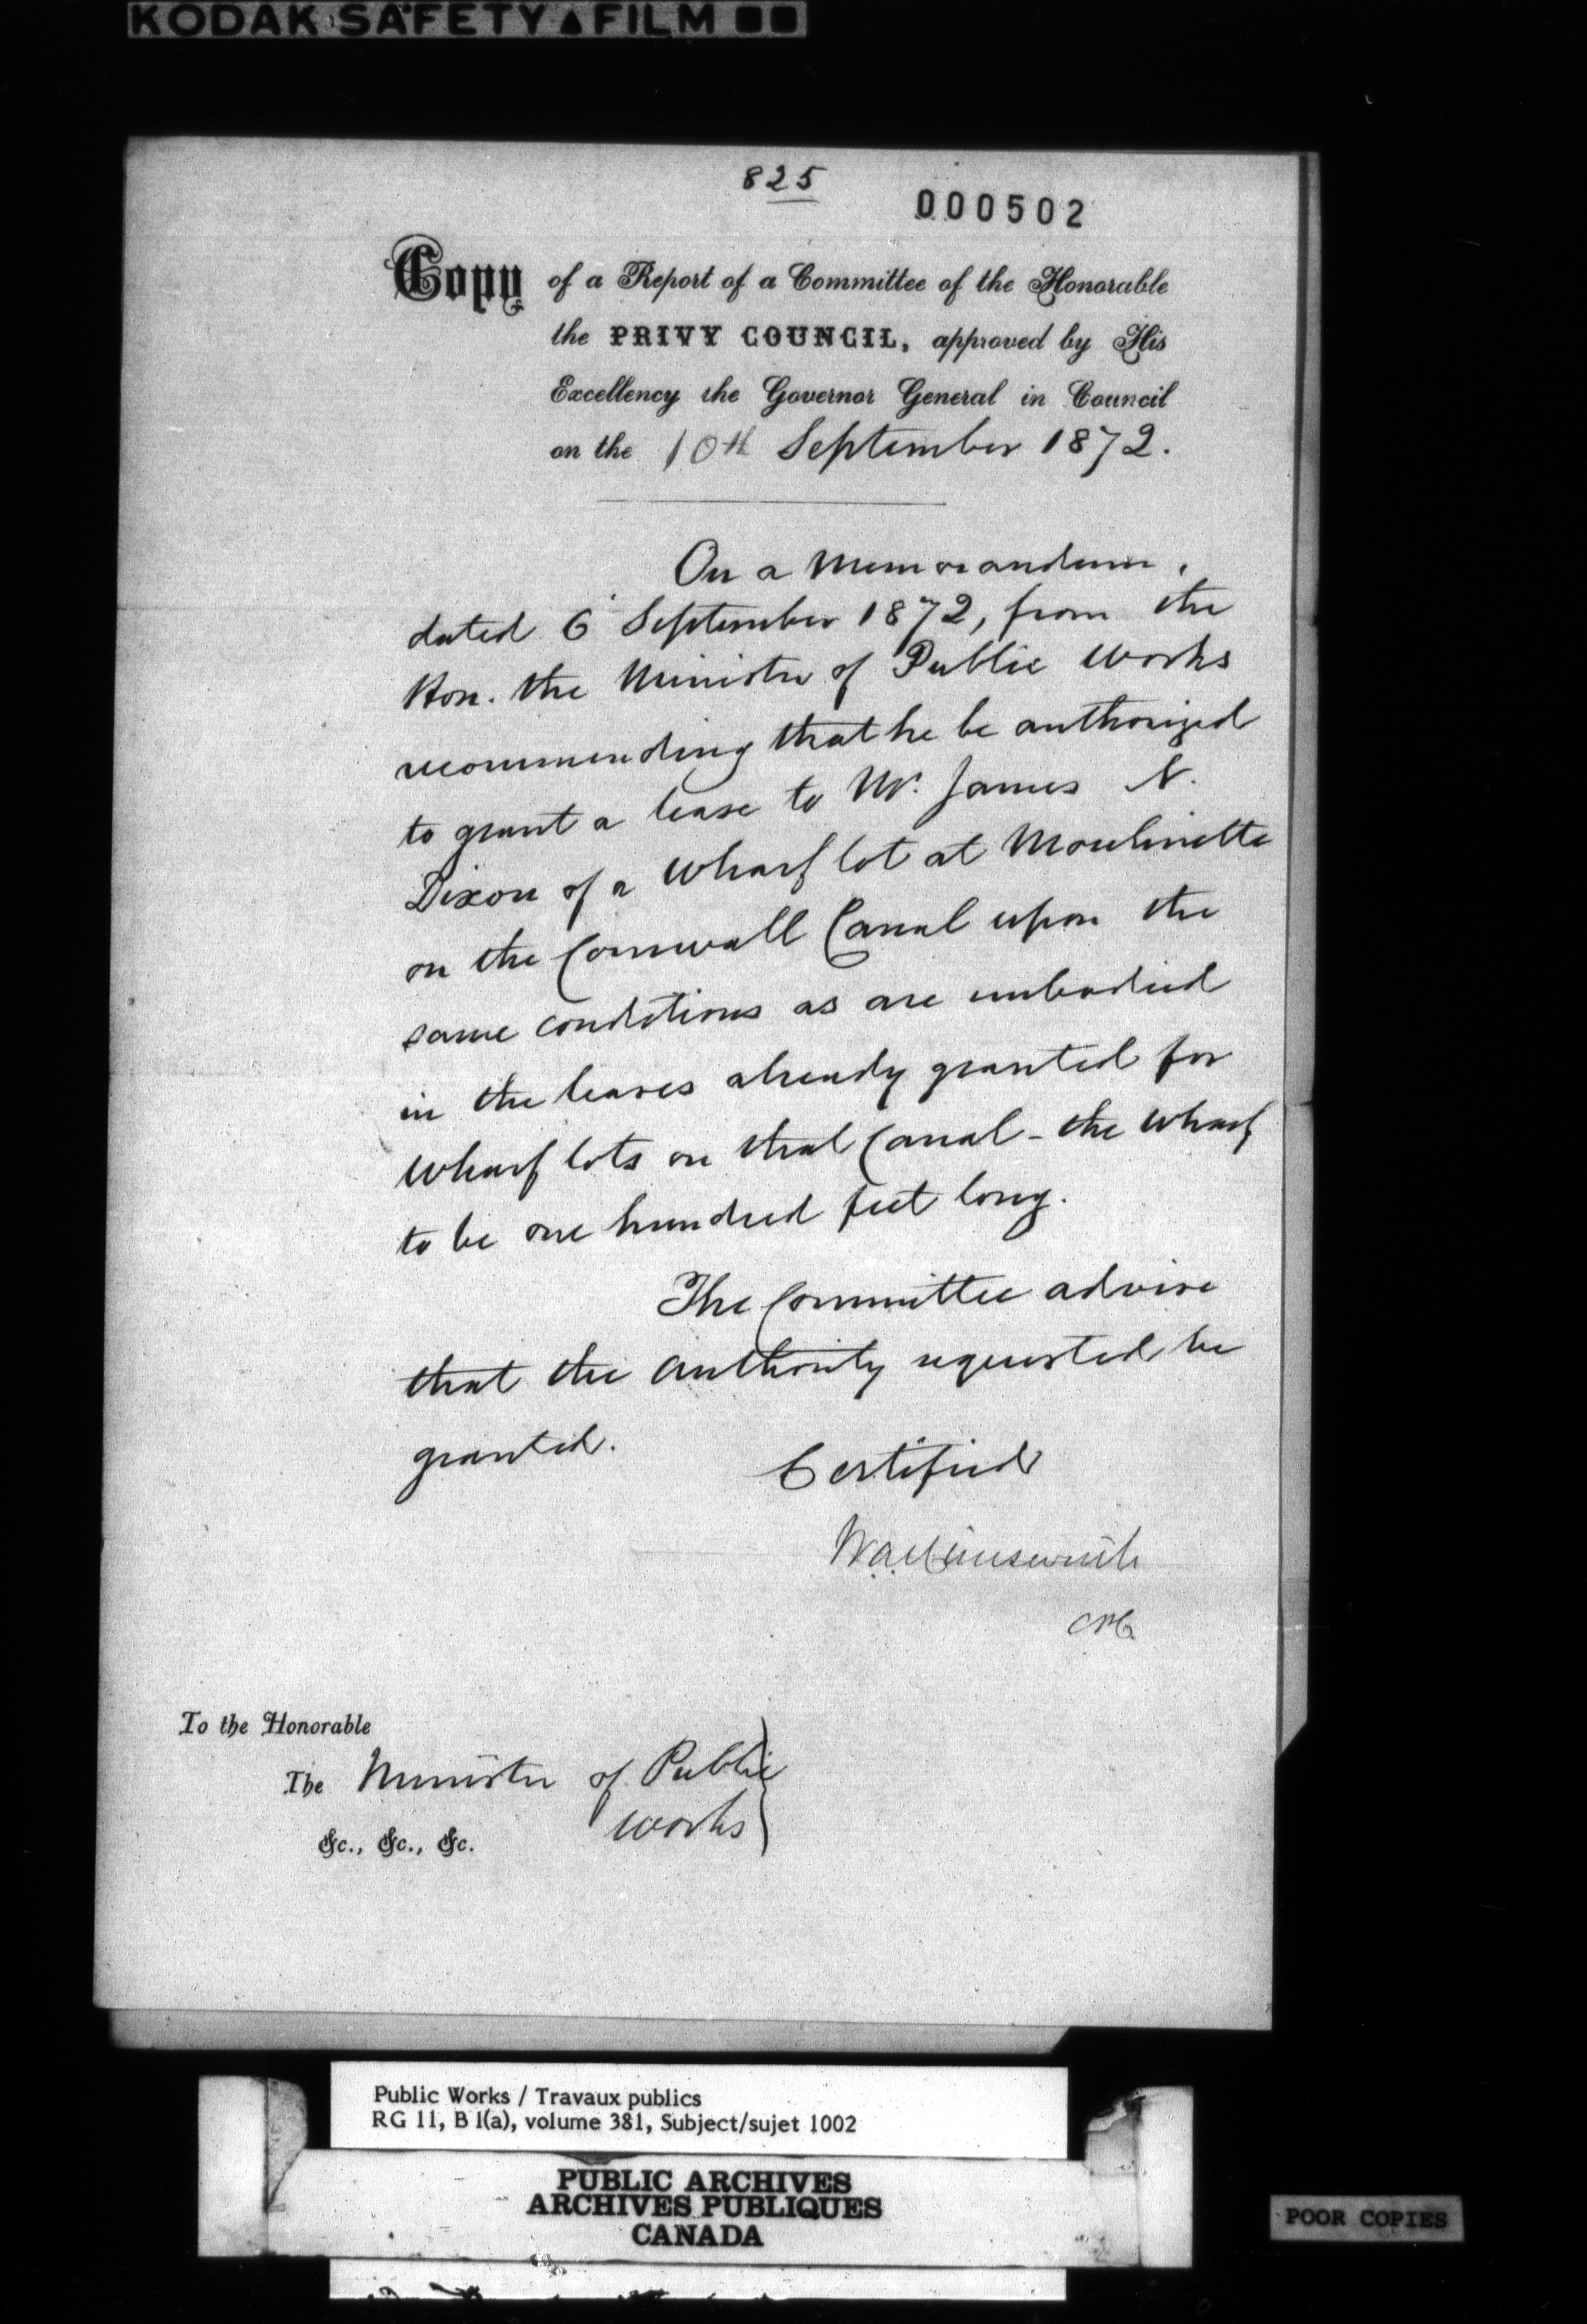 KODAK SAFETY FILM
825
000502
Copy of a Report of a Committee of the Honorable
the PRIVY COUNCIL, approved by His
Excellency the Governor General in Council
on the 10th September 1872.
On a Memorandum,
dated 6 September 1872, from the
Hon. the Minister of Public Works
recommending that he be authorized
to grant a lease to Mr. James N.
Dixon of a Wharf lot at Moulinette
on the Cornwall Canal upon the
same conditions as are embodied
in the leases already granted for
Wharf lots on that Canal - the Wharf
to be one hundred feet long.
The Committee advise
that the authority requested be
granted.
Certified
W.A. Himsworth
CPC
To the Honorable
The Minister of Public
Works
&c., &c., &c.
Public Works / Travaux publics
RG 11, B 1(a), volume 381, Subject/sujet 1002
PUBLIC ARCHIVES
ARCHIVES PUBLIQUES
CANADA
POOR COPIES